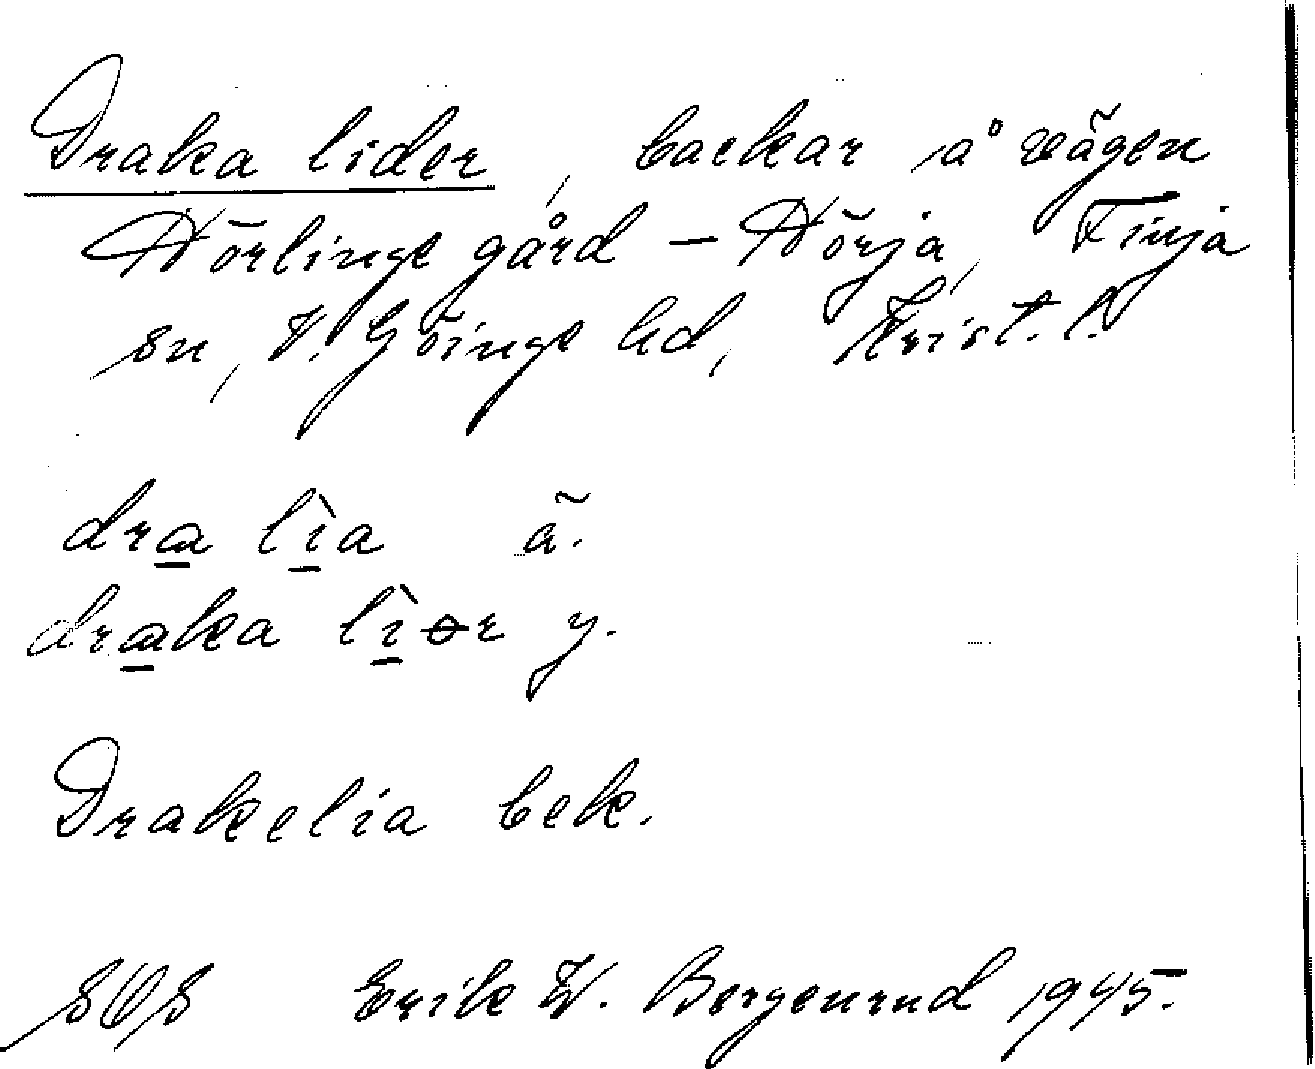 Draka lider, backar å vägen
Hörlinge gård – Hörja, Finja
sn, V. Göinge hd, Krist. l.
dra lìa ä.
draka lìər y.
Drakelia bek.
SOS Erik W. Bergenrud 1945.